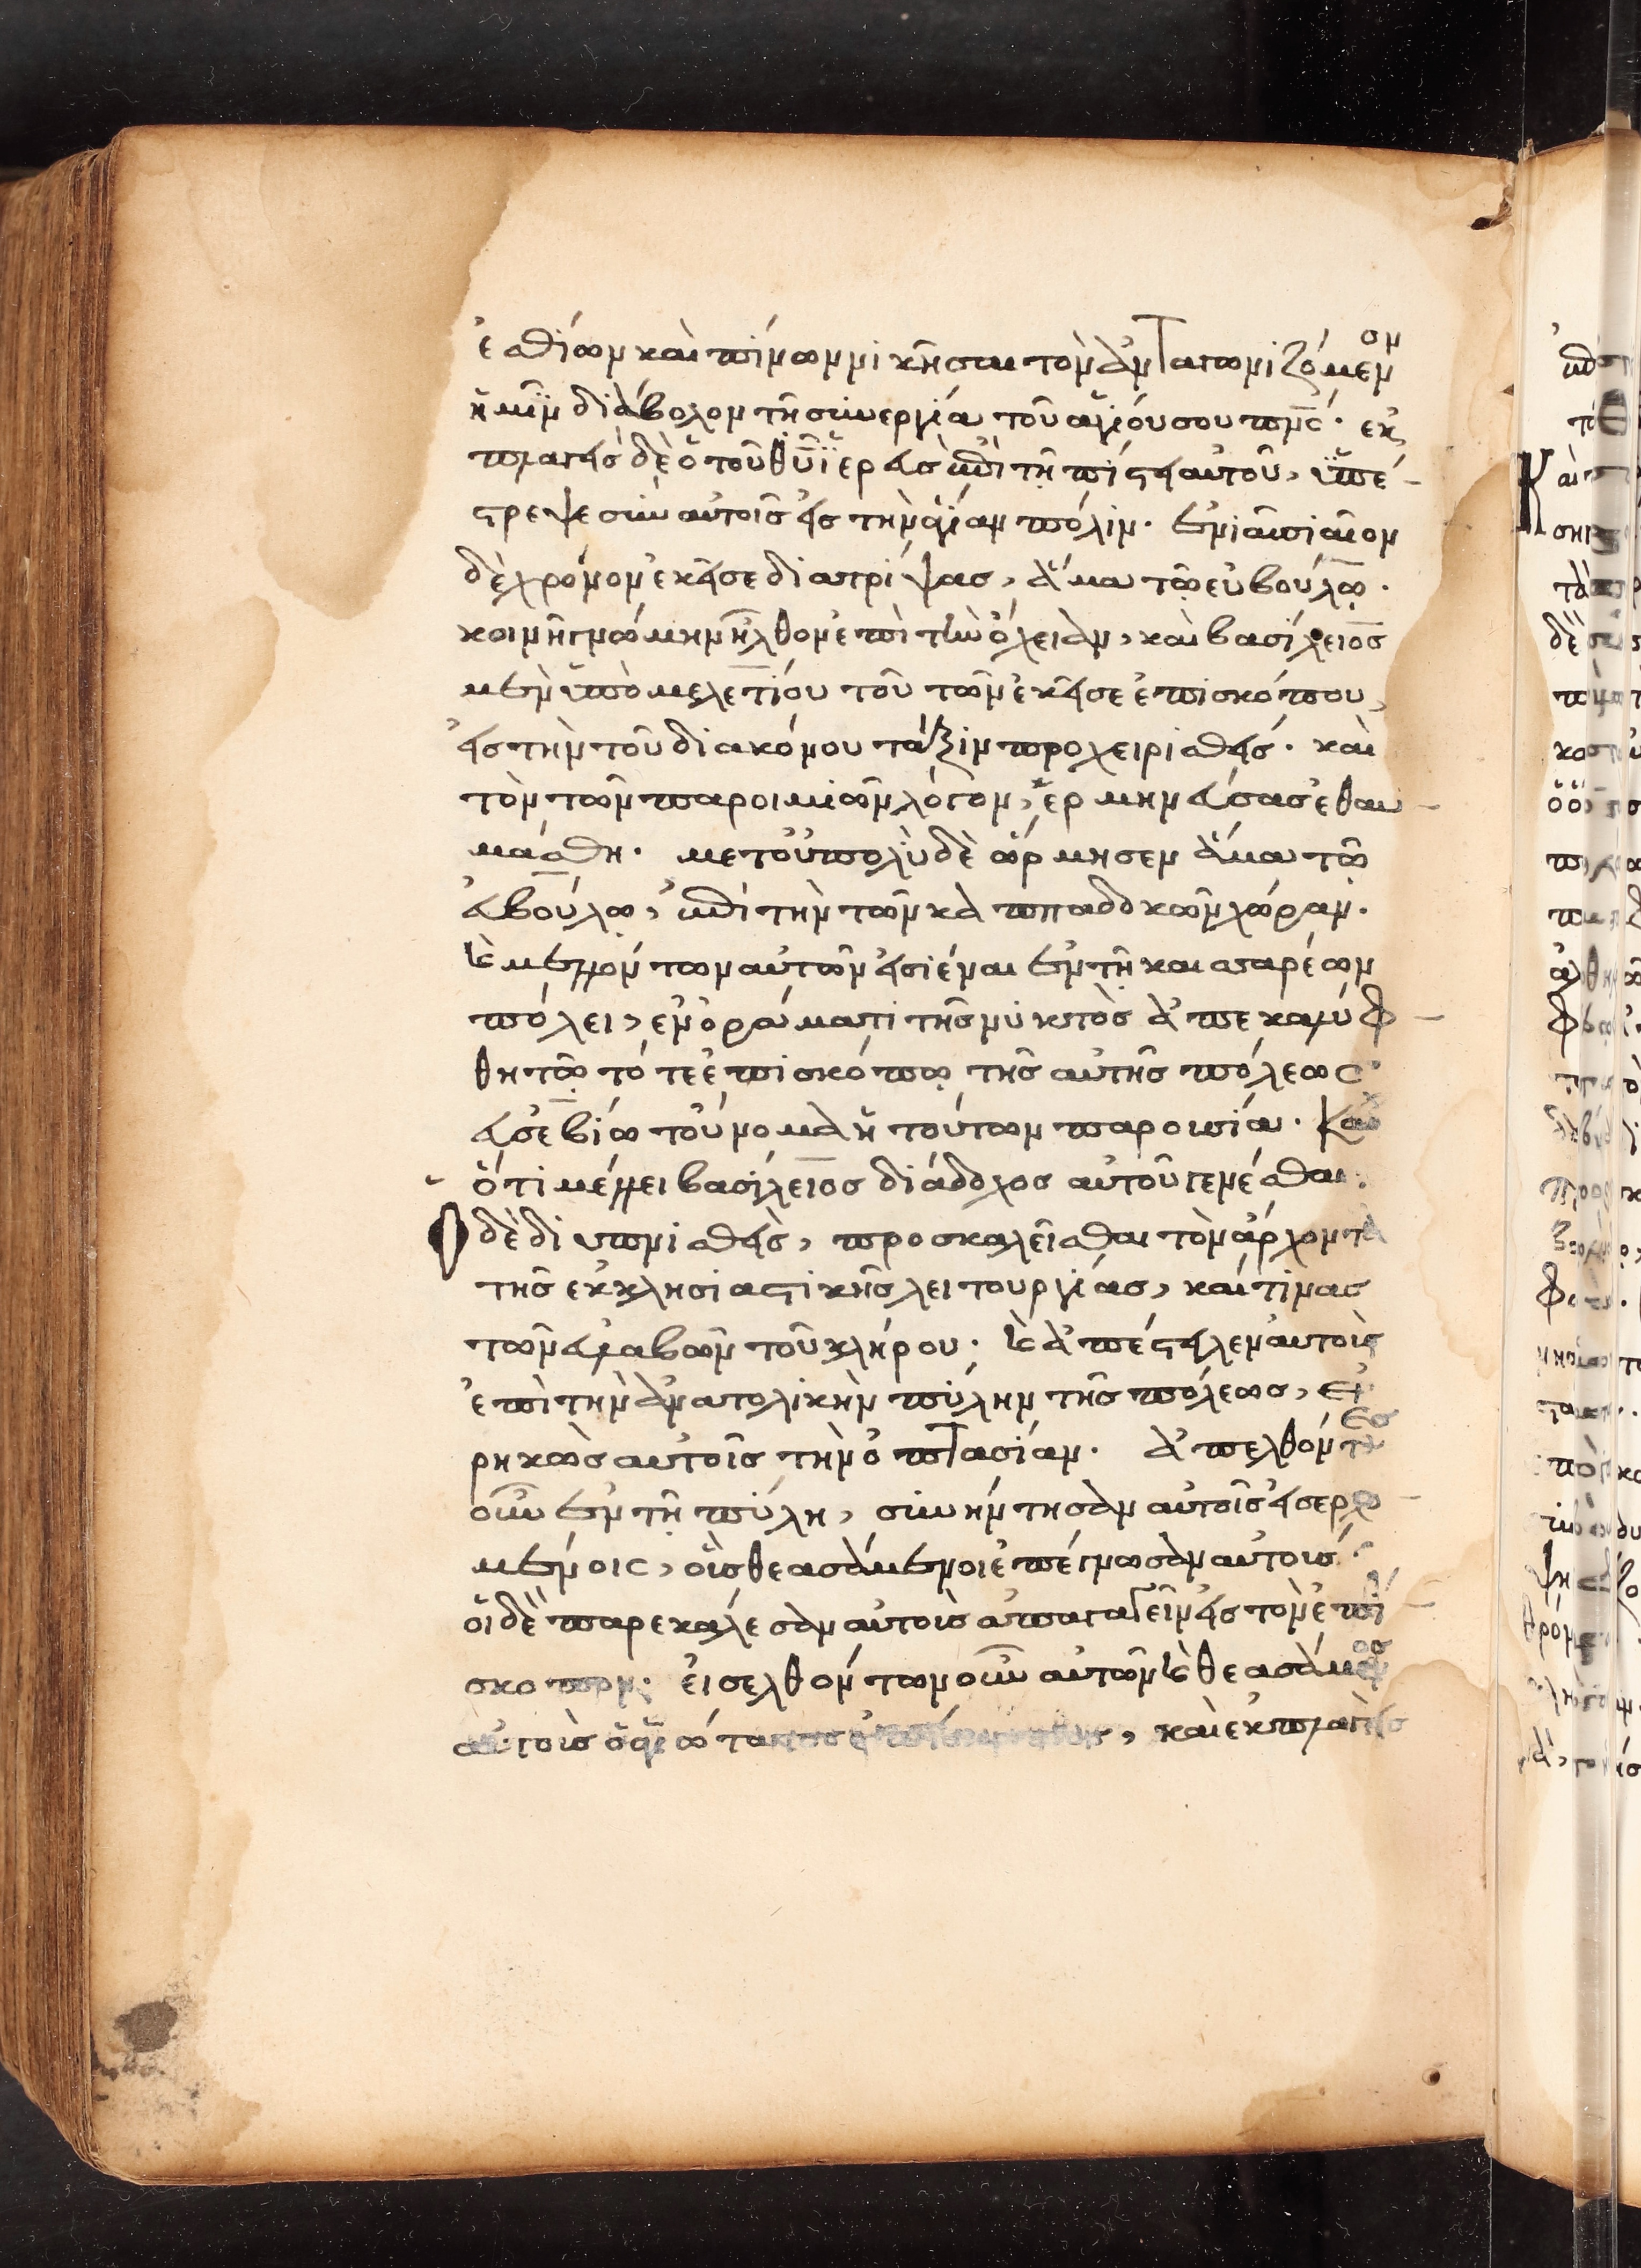 ἐσθίων καὶ πίνων νικῆσαι τὸν ἀνταγωνιζόμενον
ἡμῖν διάβολον τῆ συνεργία τοῦ ἁγίου σου πνς. ἐκ
πλαγεὶς δὲ ὁ τοῦ θυ ἱερεὺς ἐπὶ τῆ πίστει αὐτοῦ, ὑπέ
στρεψε σὺν αὐτοῖς εἰς τὴν ἁγίαν πόλιν. ἐνιαυσιαῖον
δὲ χρόνον ἐκεῖσε διατρίψας, ἅμα τῶ εὐβούλω.
κοινῆ γνώμη ἦλθον ἐπὶ τὴν ἀντιόχειαν, καὶ βασίλειος
μὲν ὑπὸ μελετίου τοῦ τῶν ἐκεῖσε ἐπισκόπου,
εἰς τὴν τοῦ διακόνου τάξιν προχειρισθεὶς. καὶ
τὸν τῶν παροιμιῶν λόγον, ἑρμηνεύσας ἐθαυ
μάσθη. μετ' οὐ πολὺ δὲ ὥρμησεν ἅμα τῶ
εὐβούλω, ἐπὶ τὴν τῶν καππαδοκῶν χώραν.
καὶ μελλόντων αὐτῶν εἰσιέναι ἐν τῆ καισαρέων
πόλει, ἐν ὁράματι τῆς νυκτὸς ἀπεκαλύφ
θη τῶ τότε ἐπισκόπω τῆς αὐτῆς πόλεως
εὐσεβίω τοὔνομα ἡ τούτων παρουσία. καὶ
ὅτι μέλλει βασίλειος διάδοχος αὐτοῦ γενέσθαι.
Ὁ δὲ διυπνισθεὶς, προσκαλεῖσθαι τὸν ἄρχοντα
τῆς ἐκκλησιαστικῆς λειτουργίας, καὶ τινας
τῶν εὐλαβῶν τοῦ κλήρου. καὶ ἀπέστειλεν αὐτοὺς
ἐπὶ τὴν ἀνατολικὴν πύλην τῆς πόλεως, εἰ
ρηκὼς αὐτοῖς τὴν ὀπτασίαν. ἀπελθόντες
οὖν ἐν τῆ πύλη, συνήντησαν αὐτοῖς εἰσερχο
μένοις, οὓς θεασάμενοι ἐπέγνωσαν αὐτοὺς.
οἱ δὲ παρεκάλεσαν αὐτοὺς ἀπαγαγεῖν εἰς τὸν ἐπί
σκοπον. εἰσελθόντων οὖν αὐτῶν καὶ θεασάμενος
αὐτοὺς ὁ ἁγιώτατος ἐπίσκοπος, καὶ ἐκπλαγεὶς